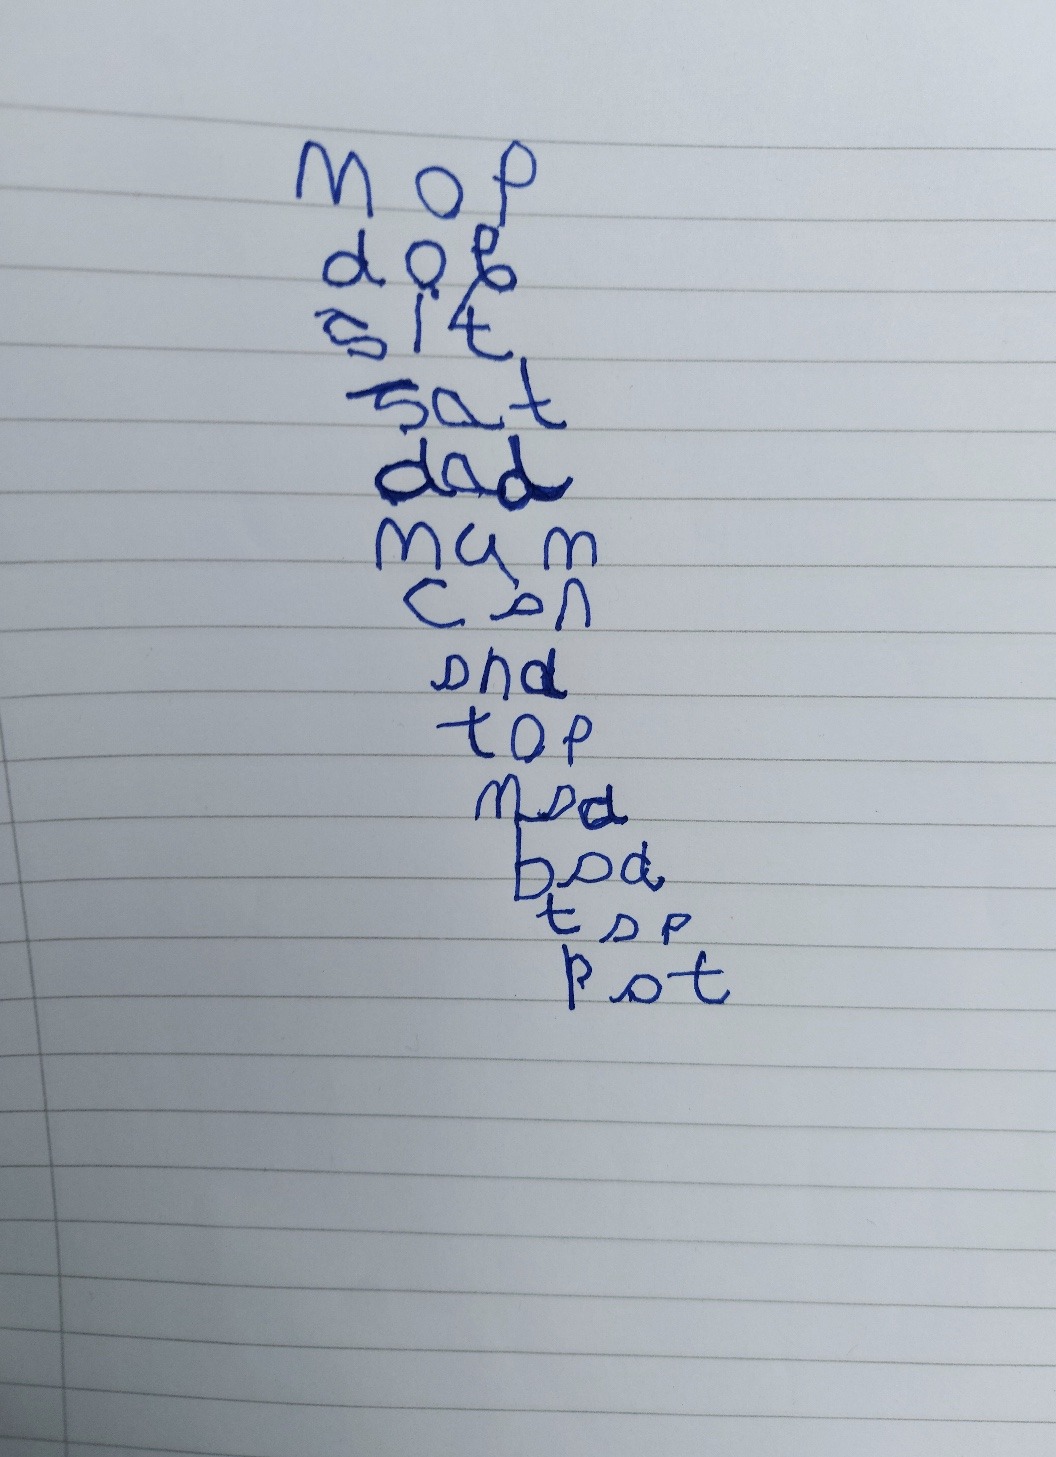 mop
dog
sit
sat
dad
mum
can
and
top
mad
bad
tap
pot